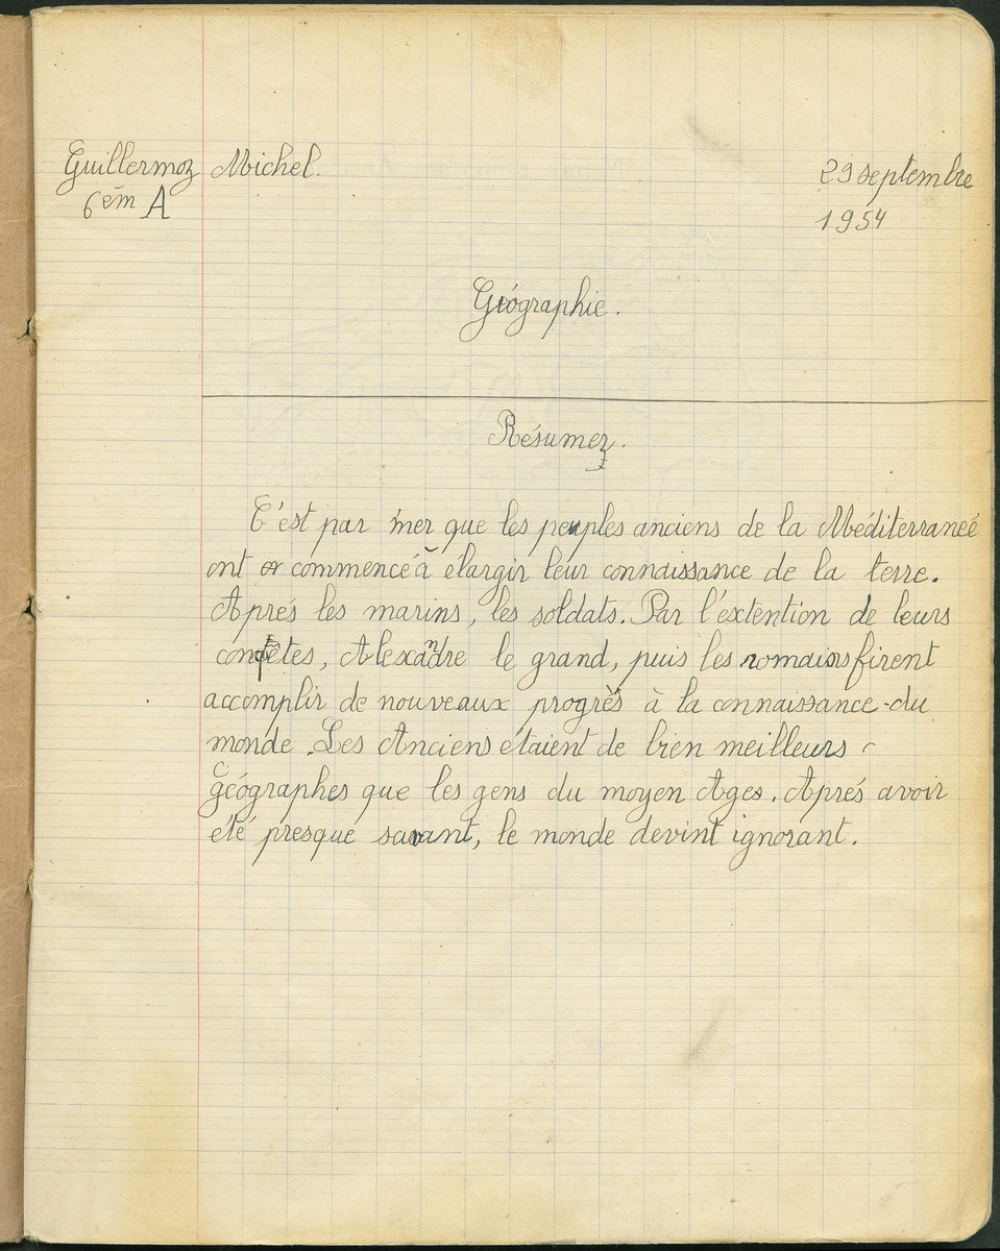 Guillermoz Michel.
29 septembre
6ém A
1954
Géographie.
Résumez.
C'est par mer que les peuples anciens de la Méditerraneé
ont commencé à élargir leur connaissance de la terre.
Aprés les marins, les soldats. Par l'éxtention de leurs
conqêtes, Alexandre le grand, puis les romains firent
accomplir de nouveaux progrès à la connaissance du
monde. Les Anciens étaient de bien meilleurs
géographes que les gens du moyen Ages. Aprés avoir
été presque savant, le monde devint ignorant.